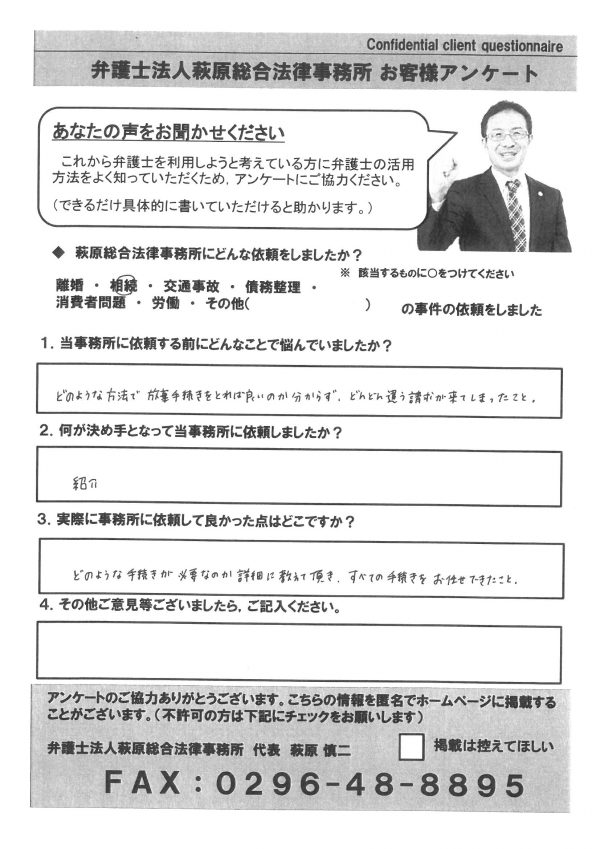 Confidential client questionnaire
弁護士法人萩原総合法律事務所 お客様アンケート
あなたの声をお聞かせください
これから弁護士を利用しようと考えている方に弁護士の活用
方法をよく知っていただくため，アンケートにご協力ください。
（できるだけ具体的に書いていただけると助かります。）
◆ 萩原総合法律事務所にどんな依頼をしましたか？
※ 該当するものに○をつけてください
離婚 ・ 相続 ・ 交通事故 ・ 債務整理 ・
消費者問題 ・ 労働 ・ その他（ ） の事件の依頼をしました
１．当事務所に依頼する前にどんなことで悩んでいましたか？
どのような方法で 放棄手続きをとれば良いのか分からず、どんどん違う請求が来てしまったこと。
２．何が決め手となって当事務所に依頼しましたか？
紹介
３．実際に事務所に依頼して良かった点はどこですか？
どのような手続きが必要なのか詳細に教えて頂き、すべての手続きをお任せできたこと。
４．その他ご意見等ございましたら，ご記入ください。
アンケートのご協力ありがとうございます。こちらの情報を匿名でホームページに掲載する
ことがございます。（不許可の方は下記にチェックをお願いします）
弁護士法人萩原総合法律事務所 代表 萩原 慎二 掲載は控えてほしい
ＦＡＸ：０２９６－４８－８８９５